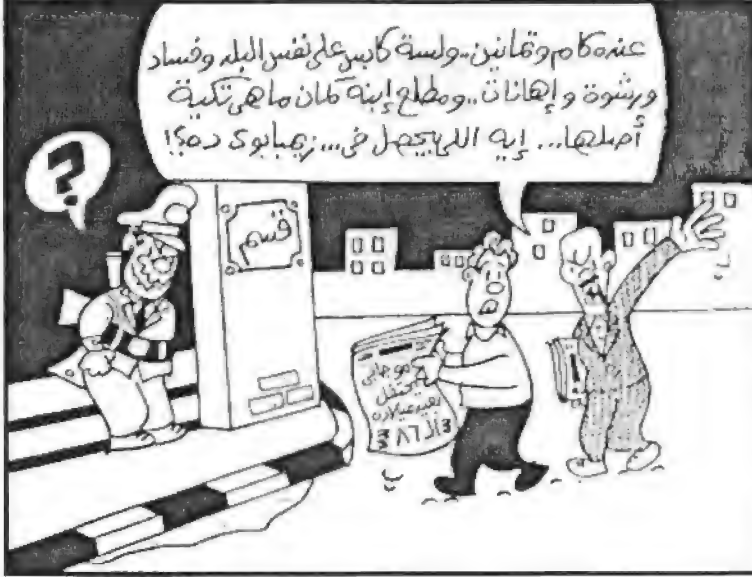 عنده كام وتمانين.. ولسة كابس على نفس البلد وفساد
ورشوة وإهانات.. ومطلع إبنه كمان ما هي تكية
أصلها... إيه اللي بيحصل في... زيمبابوى ده؟!
?
قسم
موجابى
يحتفل
بعيد ميلاده
الـ ٨٦